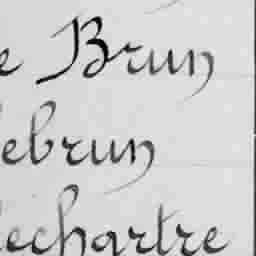 e Brun
lebrun
lechartre